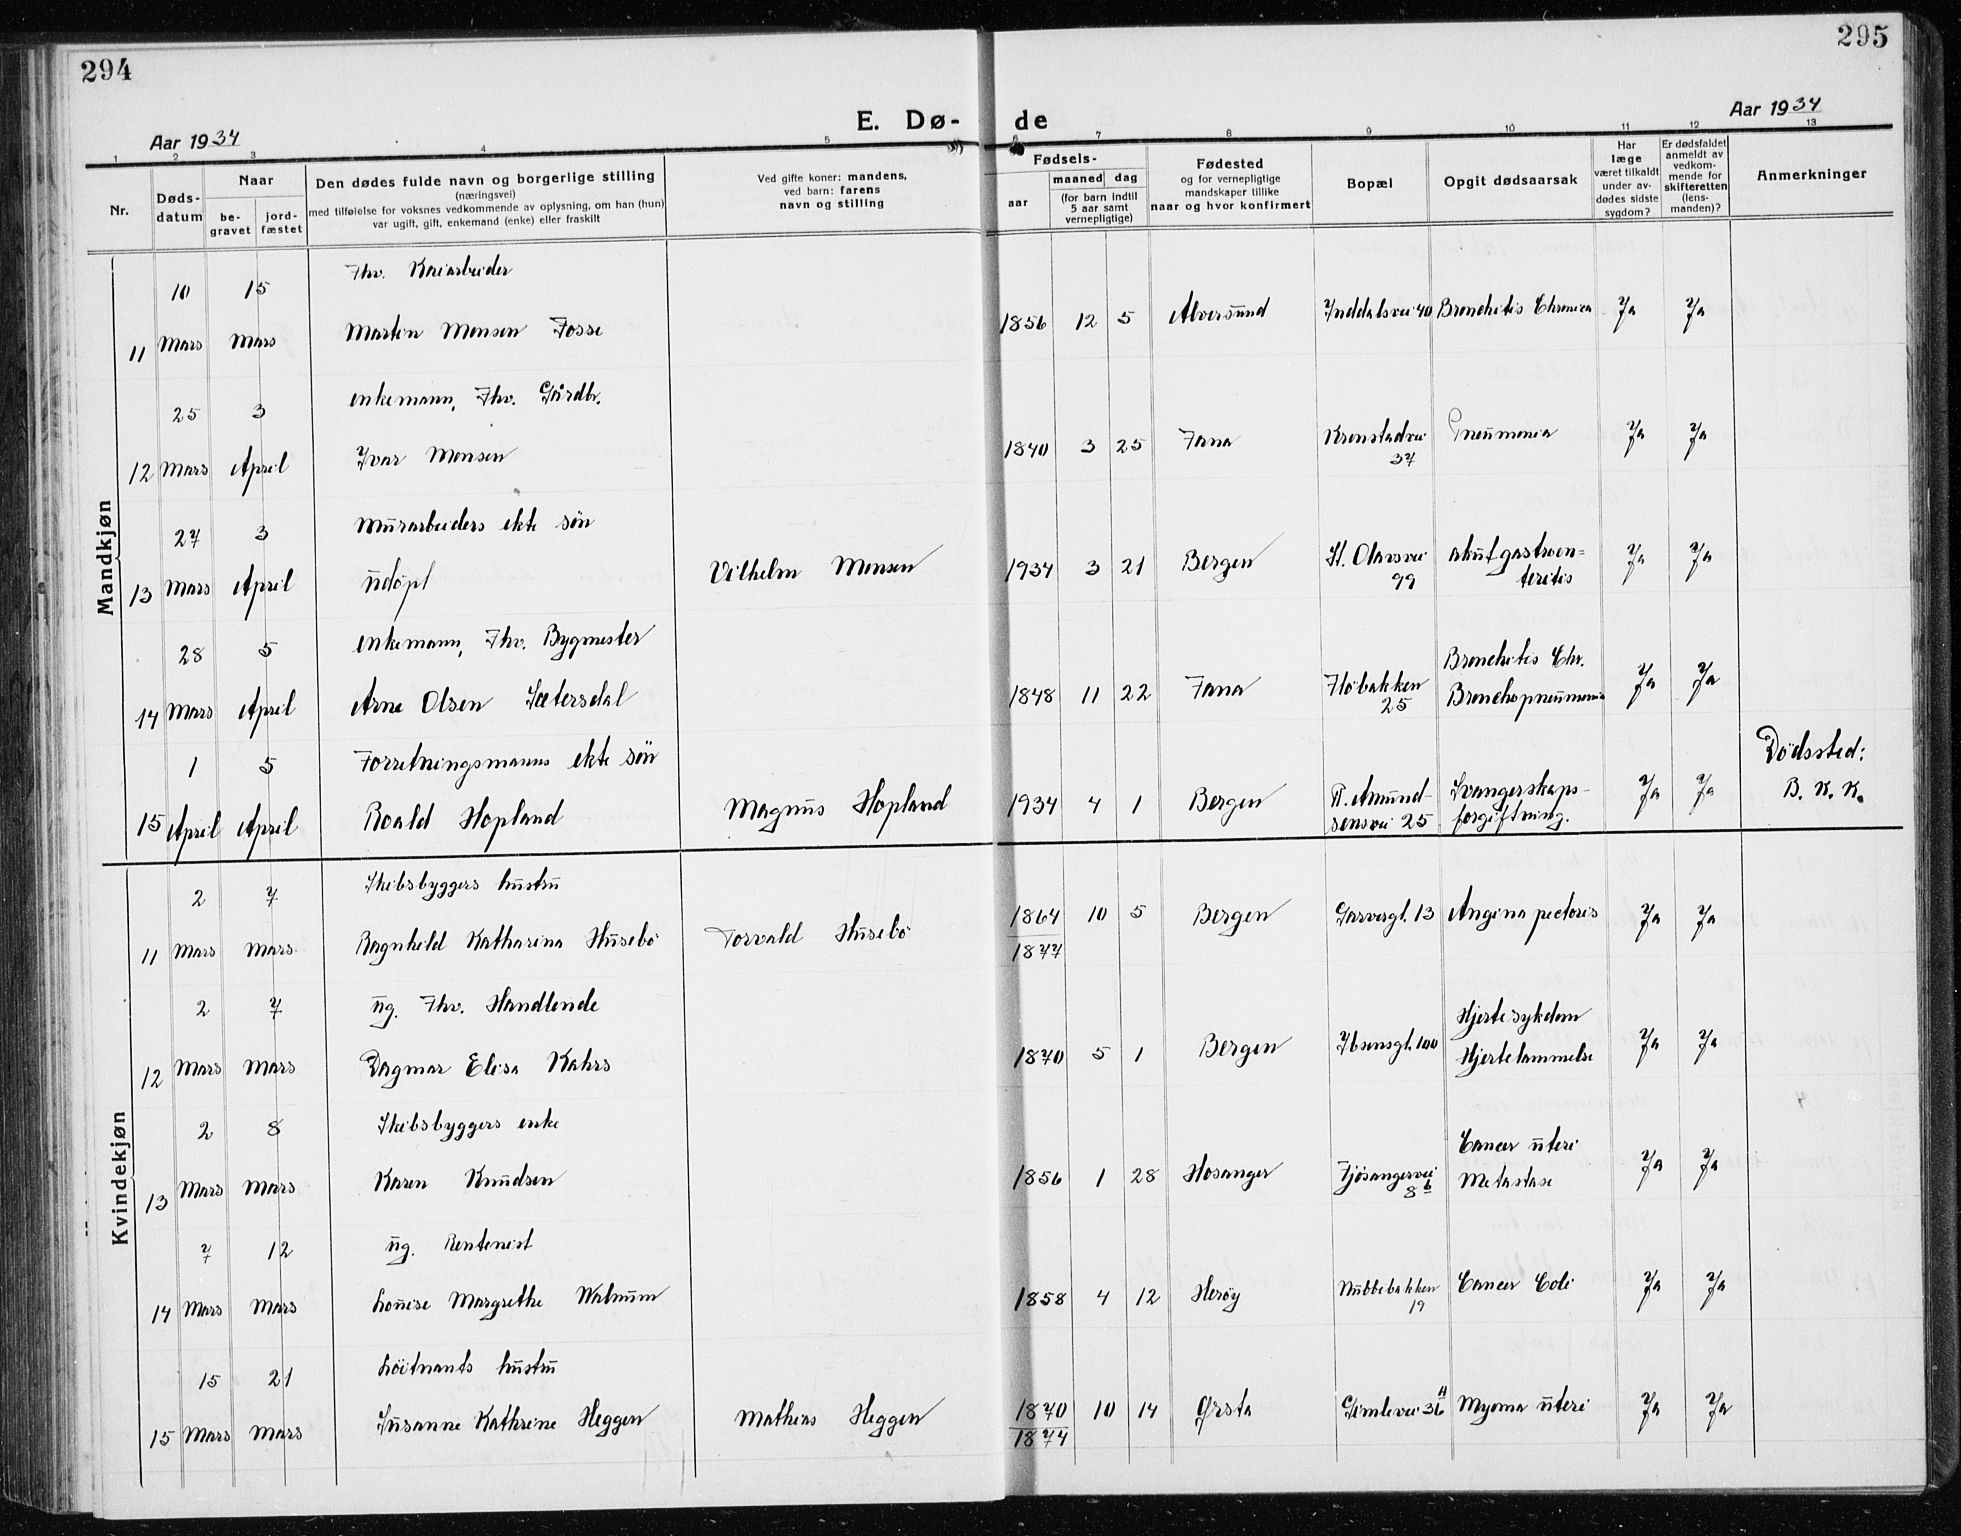 294
295
E. Dø- de
Aar 1934
Aar 1934
1 2 3 4 5 6 7 8 9 10 11 12 13
Nr.
Døds-
datum
Naar
be-
gravet
jord-
fæstet
Den dødes fulde navn og borgerlige stilling
(næringsvei)
med tilføielse for voksnes vedkommende av oplysning, om han (hun)
var ugift, gift, enkemand (enke) eller fraskilt
Ved gifte koner: mandens,
ved barn: farens
navn og stilling
Fødsels-
aar
maaned dag
(for barn indtil
5 aar samt
vernepligtige)
Fødested
og for vernepligtige
mandskaper tillike
naar og hvor konfirmert
Bopæl
Opgit dødsaarsak
Har
læge
været tilkaldt
under av-
dødes sidste
sygdom?
Er dødsfaldet
anmeldt av
vedkom-
mende for
skifteretten
(lens-
manden)?
Anmerkninger
Mandkjøn
10 15 Fhv. Kaiarbeider
11 Mars Mars Martin Monsen Fosse 1856 12 5 Alversund Inddalsvei 40 Bronchitis Chronica Ja Ja
25 3 enkemann, Fhv. Gårdbr.
12 Mars April Ivar Monsen 1840 3 25 Fana Kronstadvei 37 Pneumonia Ja Ja
27 3 Murarbeiders ekte søn
13 Mars April udøpt Vilhelm Monsen 1934 3 21 Bergen St. Olavsvei 99 akut gastroen=
teritis Ja Ja
28 5 enkemann, Fhv. Bygmester
14 Mars April Arne Olsen Sætersdal 1848 11 22 Fana Fløbakken 25 Bronchitis Chr.
Bronchopneumonia Ja Ja
1 5 Forretningsmanns ekte søn
15 April April Roald Hopland Magnus Hopland 1934 4 1 Bergen R. Amund-
sensvei 25 Svangerskaps-
forgiftning. Ja Ja Dødssted:
B. K. K.
Kvindekjøn
2 7 Skibsbyggers hustru
11 Mars Mars Ragnhild Katharina Husebø Torvald Husebø 1864 10 5 Bergen Garvergt. 13 Angina pectoris Ja Ja
1877
2 7 ug. Fhv. Handlende
12 Mars Mars Dagmar Elisa Kahrs 1870 5 1 Bergen Ibsensgt. 100 Hjertesykdom
Hjertelammelse Ja Ja
2 8 Skibsbyggers enke
13 Mars Mars Karen Knudsen 1856 1 28 Hosanger Fjøsangervei 8 b Cancer uteri
Metastase Ja Ja
7 12 ug. Rentenist
14 Mars Mars Louise Margrethe Walnum 1858 4 12 Herøy Nubbebakken 19 Cancer Coli Ja Ja
15 21 Løitnants hustru
15 Mars Mars Susanne Kathrine Heggen Mathias Heggen 1870 10 14 Ørsta Gimlevei 36 A Myoma uteri Ja Ja
1874